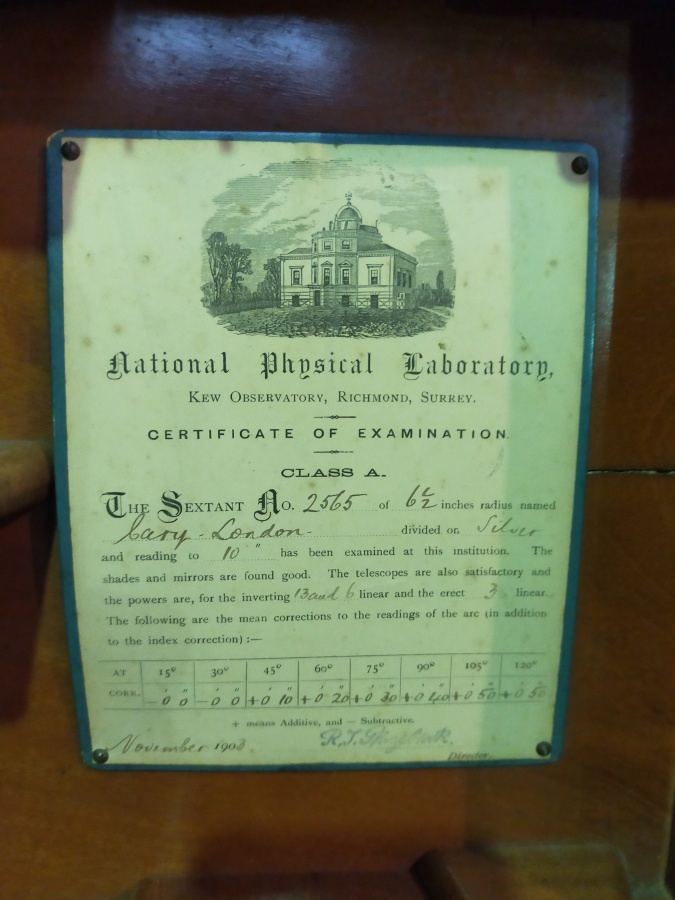 National Physical Laboratory,
KEW OBSERVATORY, RICHMOND, SURREY.
CERTIFICATE OF EXAMINATION.
CLASS A.
THE SEXTANT NO. 2565 of 6½ inches radius named
Cary - London - divided on Silver
and reading to 10" has been examined at this institution. The
shades and mirrors are found good. The telescopes are also satisfactory and
the powers are, for the inverting 13 and 6 linear and the erect 3 linear.
The following are the mean corrections to the readings of the arc (in addition
to the index correction) :—
AT 15° 30° 45° 60° 75° 90° 105° 120°
CORR. - 0' 0" - 0' 0" + 0' 10" + 0' 20" + 0' 30" + 0' 40" + 0' 50" + 0' 50"
+ means Additive, and — Subtractive.
November 1903. R.T. Glazebrook.
Director.